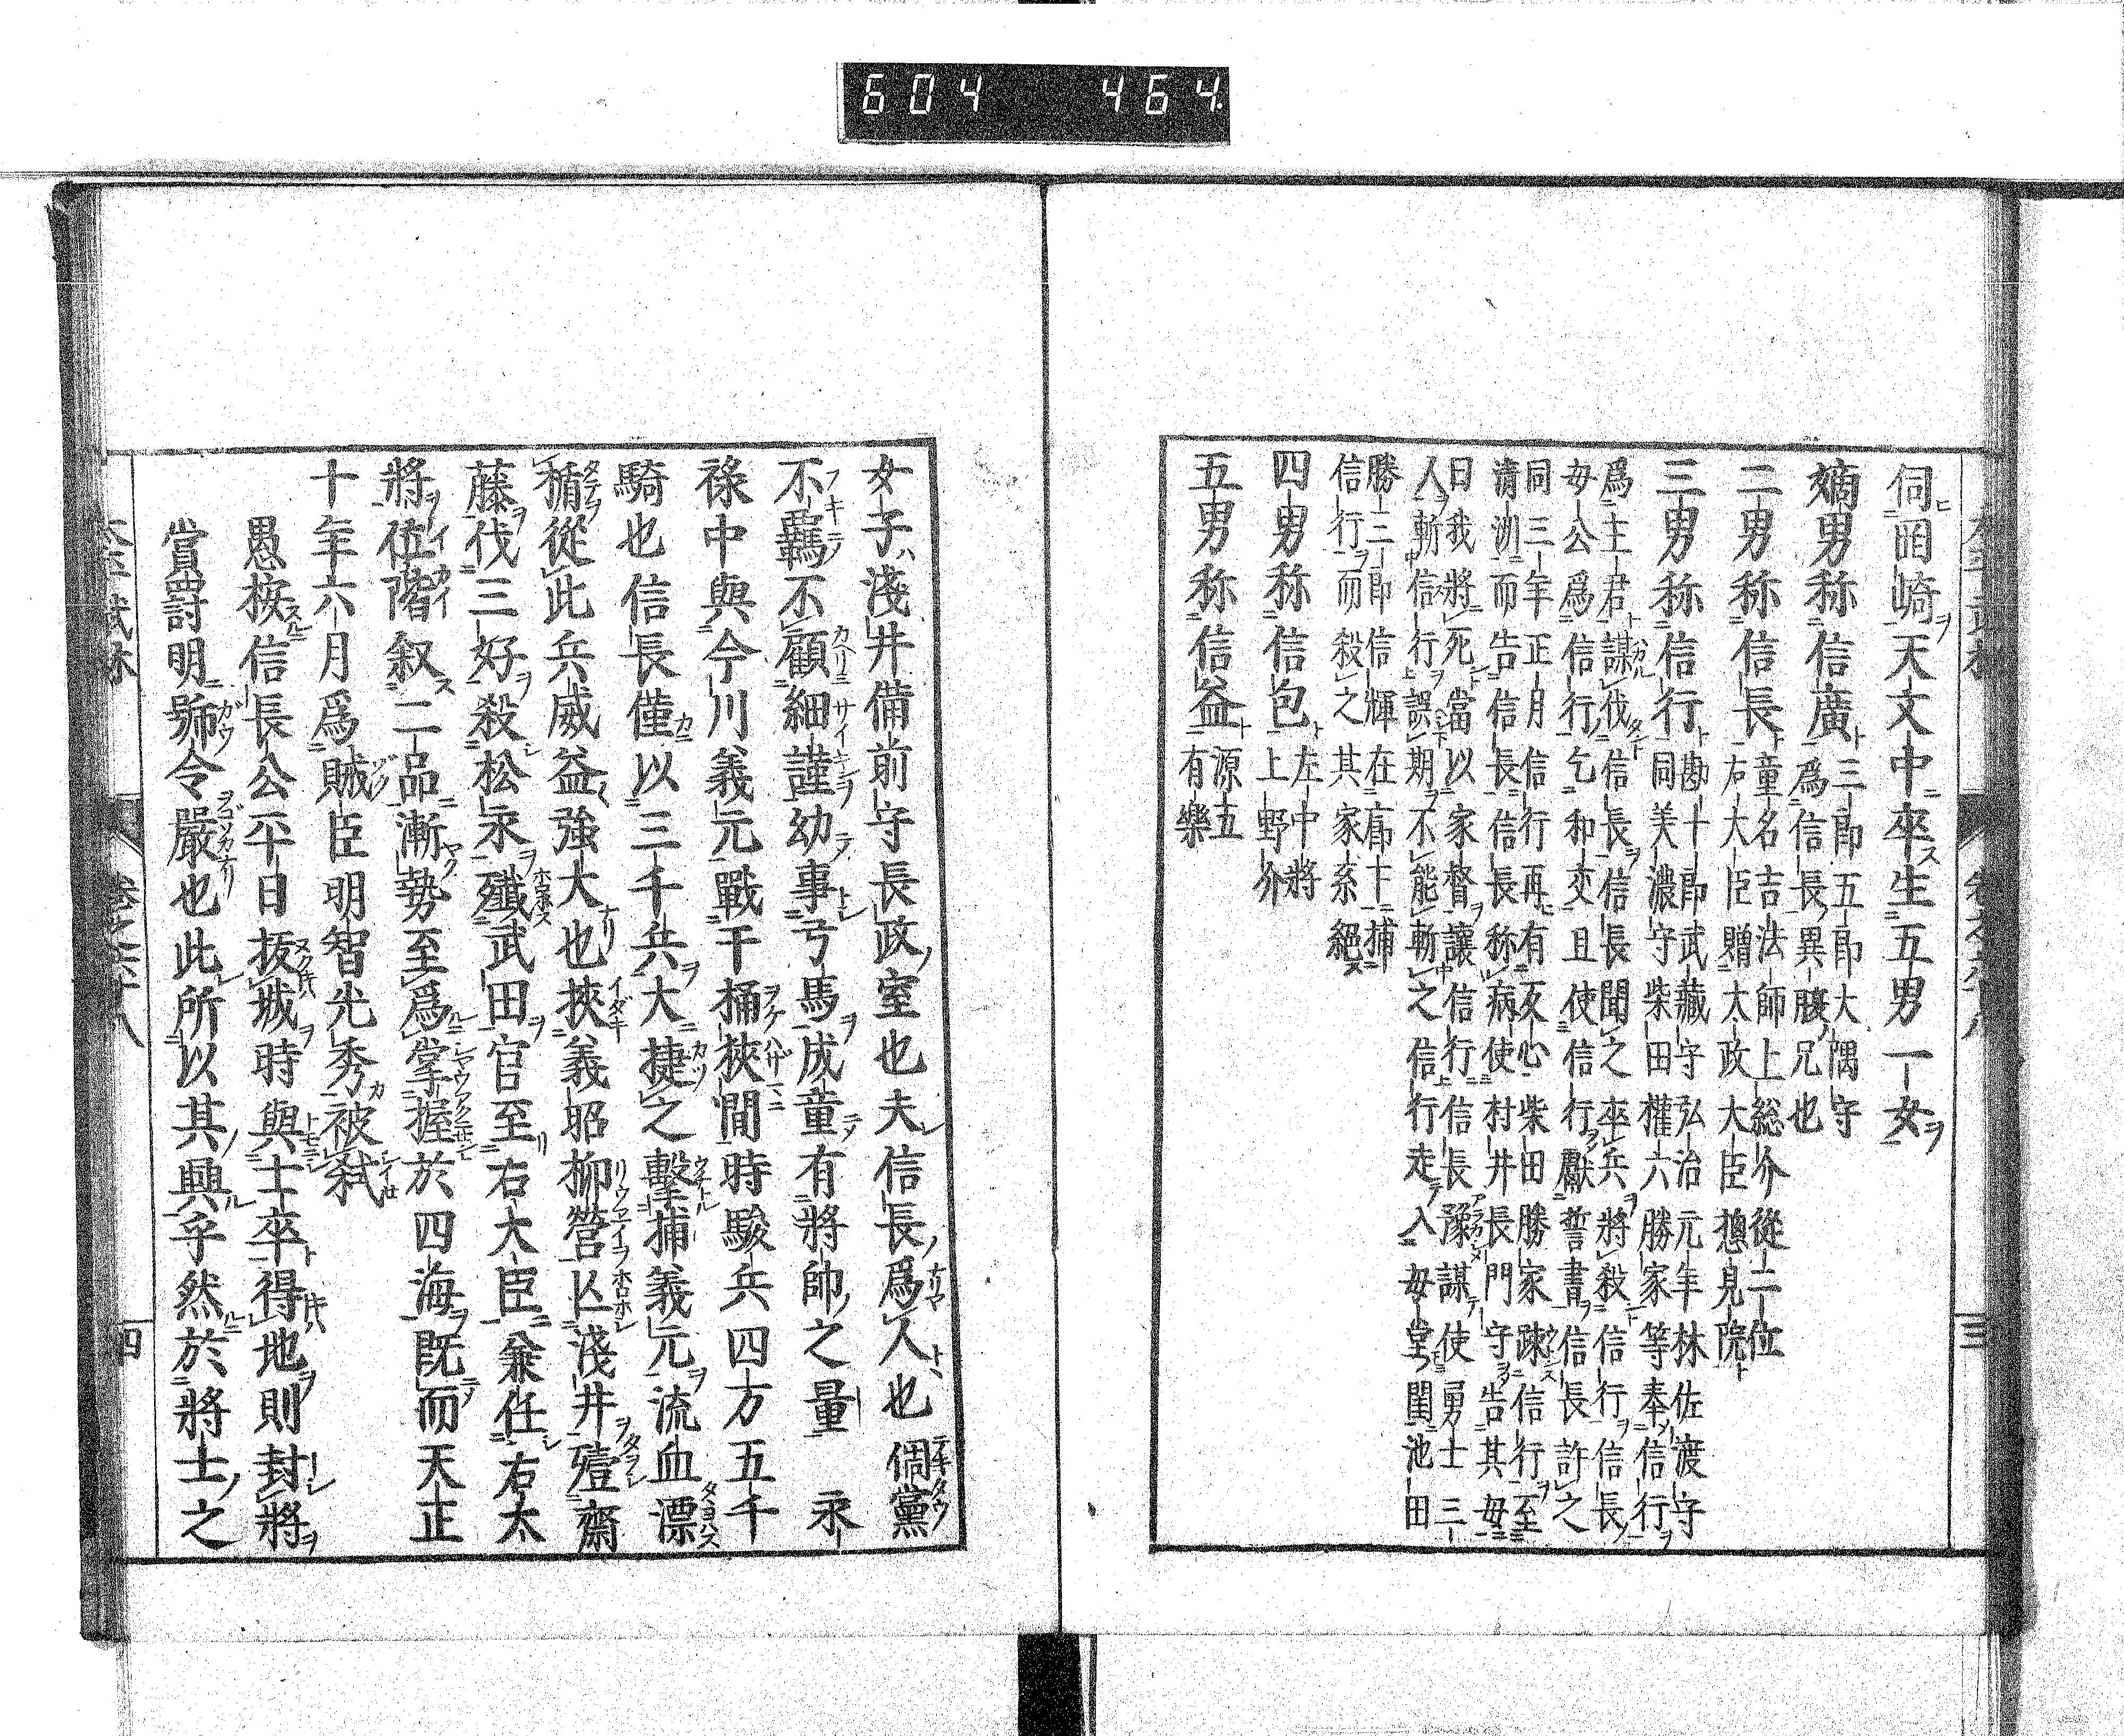 604 464
伺岡崎天文中卒生五男一女
嫡男称信廣
三郎五郎大隅守
爲信長異腹兄也
二男称信長
童名吉法師上総介從二位
右大臣贈太政大臣摠見院
三男称信行
勘十郎武藏守弘治元年林佐渡守
同美濃守柴田權六勝家等奉信行
爲主君謀伐信長信長聞之卒兵將殺信行信長
母公爲信行乞和交且使信行獻誓書信長許之
同三年正月信行再有反心柴田勝家疎信行至
清洲而告信長信長称病使村井長門守告其母
曰我將死當以家督讓信行信長豫謀使勇士三
人斬信行誤期不能斬之信行走入母堂閨池田
勝三郎信輝在廊下捕
信行而殺之其家系絕
四男称信包
左中將
上野介
五男称信益
源五
有樂
三
女子淺井備前守長政室也夫信長爲人也倜黨
不羈不顧細謹幼事弓馬成童有將帥之量永
祿中與今川義元戰于桶狹間時駿兵四方五千
騎也信長僅以三千兵大捷之擊捕義元流血漂
楯從此兵威益強大也挾義昭柳營亾淺井殪齋
藤伐三好殺松永殲武田官至右大臣兼任右大
將位階叙二品漸勢至爲掌握於四海既而天正
十年六月爲賊臣明智光秀被弑
愚按信長公平日抜城時與士卒得地則封將
賞罸明号令嚴也此所以其興乎然於將士之
四